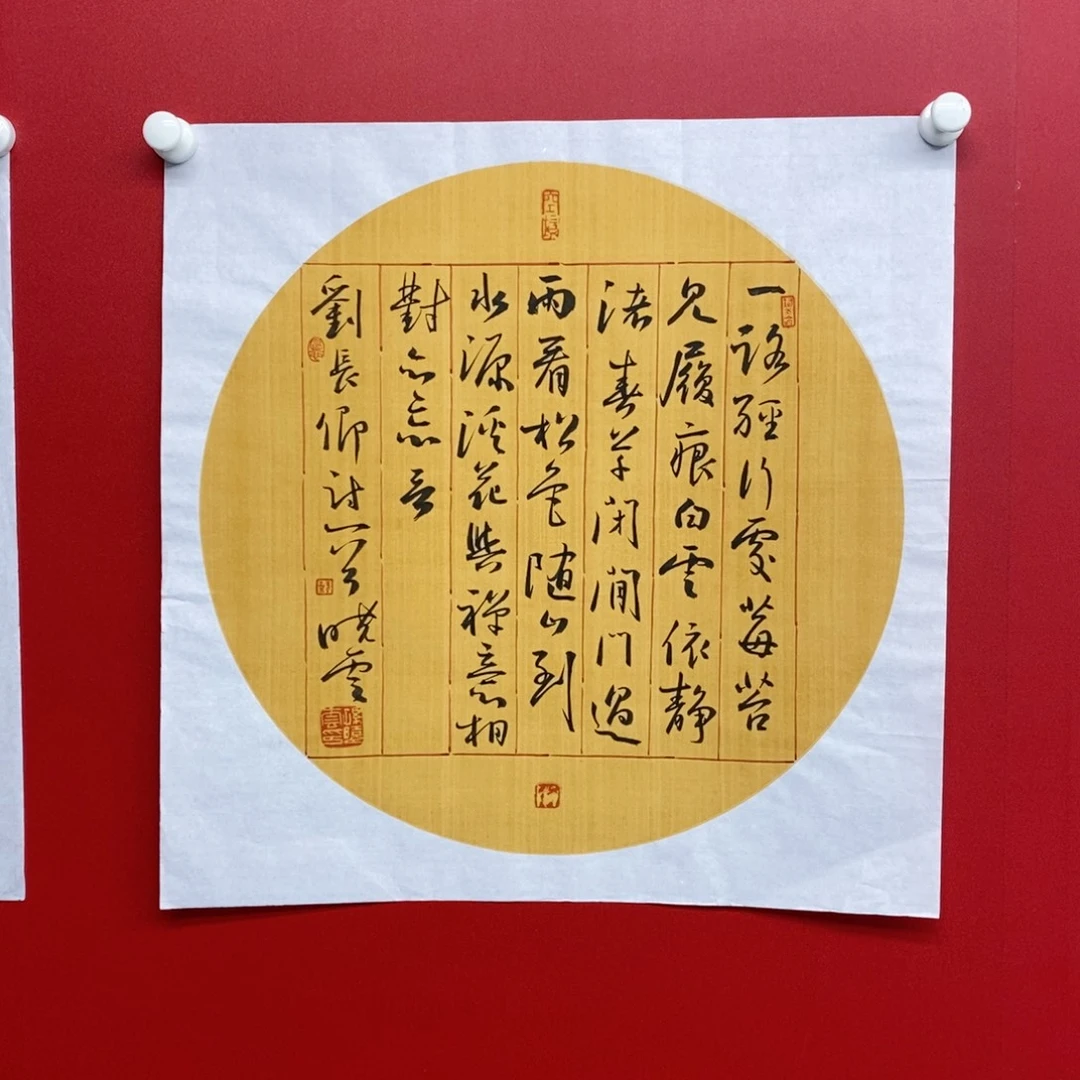 一路經行處莓苔
見履痕白雲依靜
渚春草閉閒門過
雨看松色隨山到
水源溪花與禪意相
對亦忘言
劉長卿詩一首曉雲